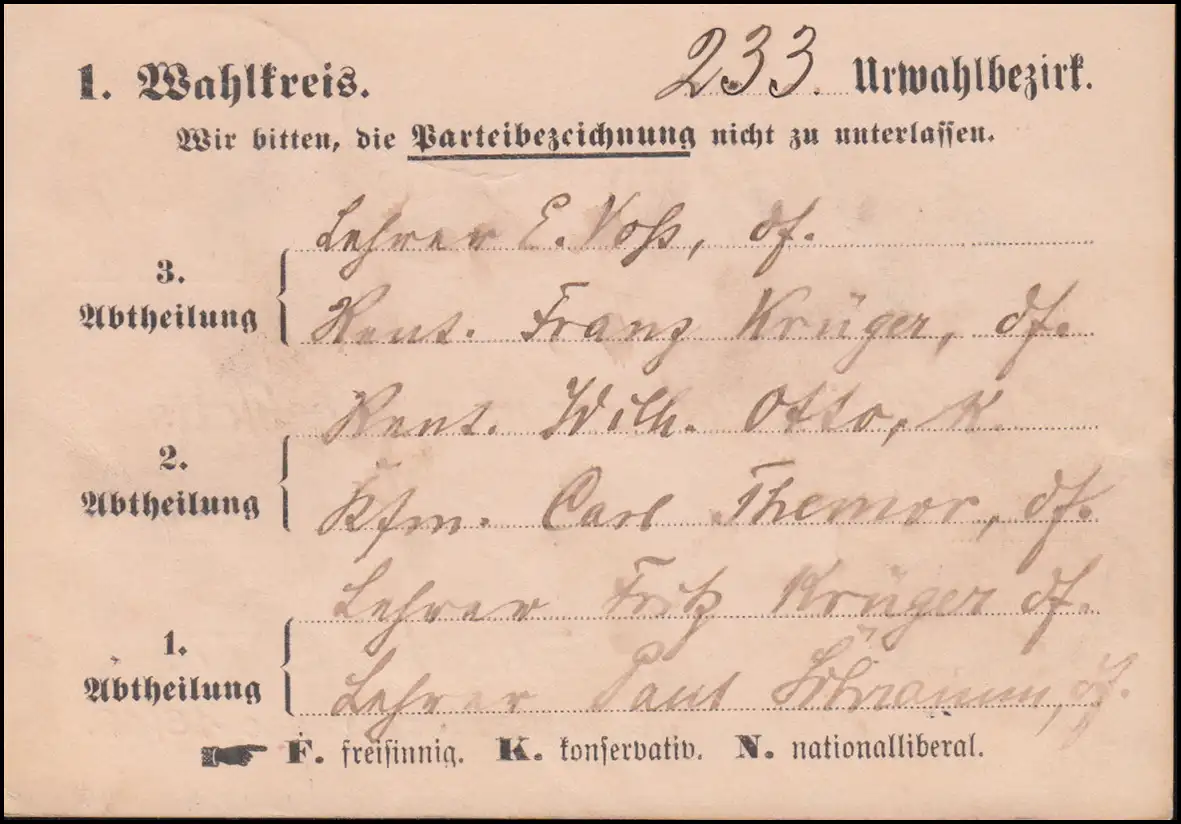 1. Wahlkreis. 233. Urwahlbezirk.
Wir bitten, die Parteibezeichnung nicht zu unterlassen.
3. Abtheilung
Lehrer E. Voß, df.
Rent. Franz Krüger, df.
2. Abtheilung
Rent. Wilh. Otto, K.
Kfm. Carl Themor, df.
1. Abtheilung
Lehrer Fritz Krüger df.
Lehrer Paul df.
F. freisinnig. K. konservativ. N. nationalliberal.